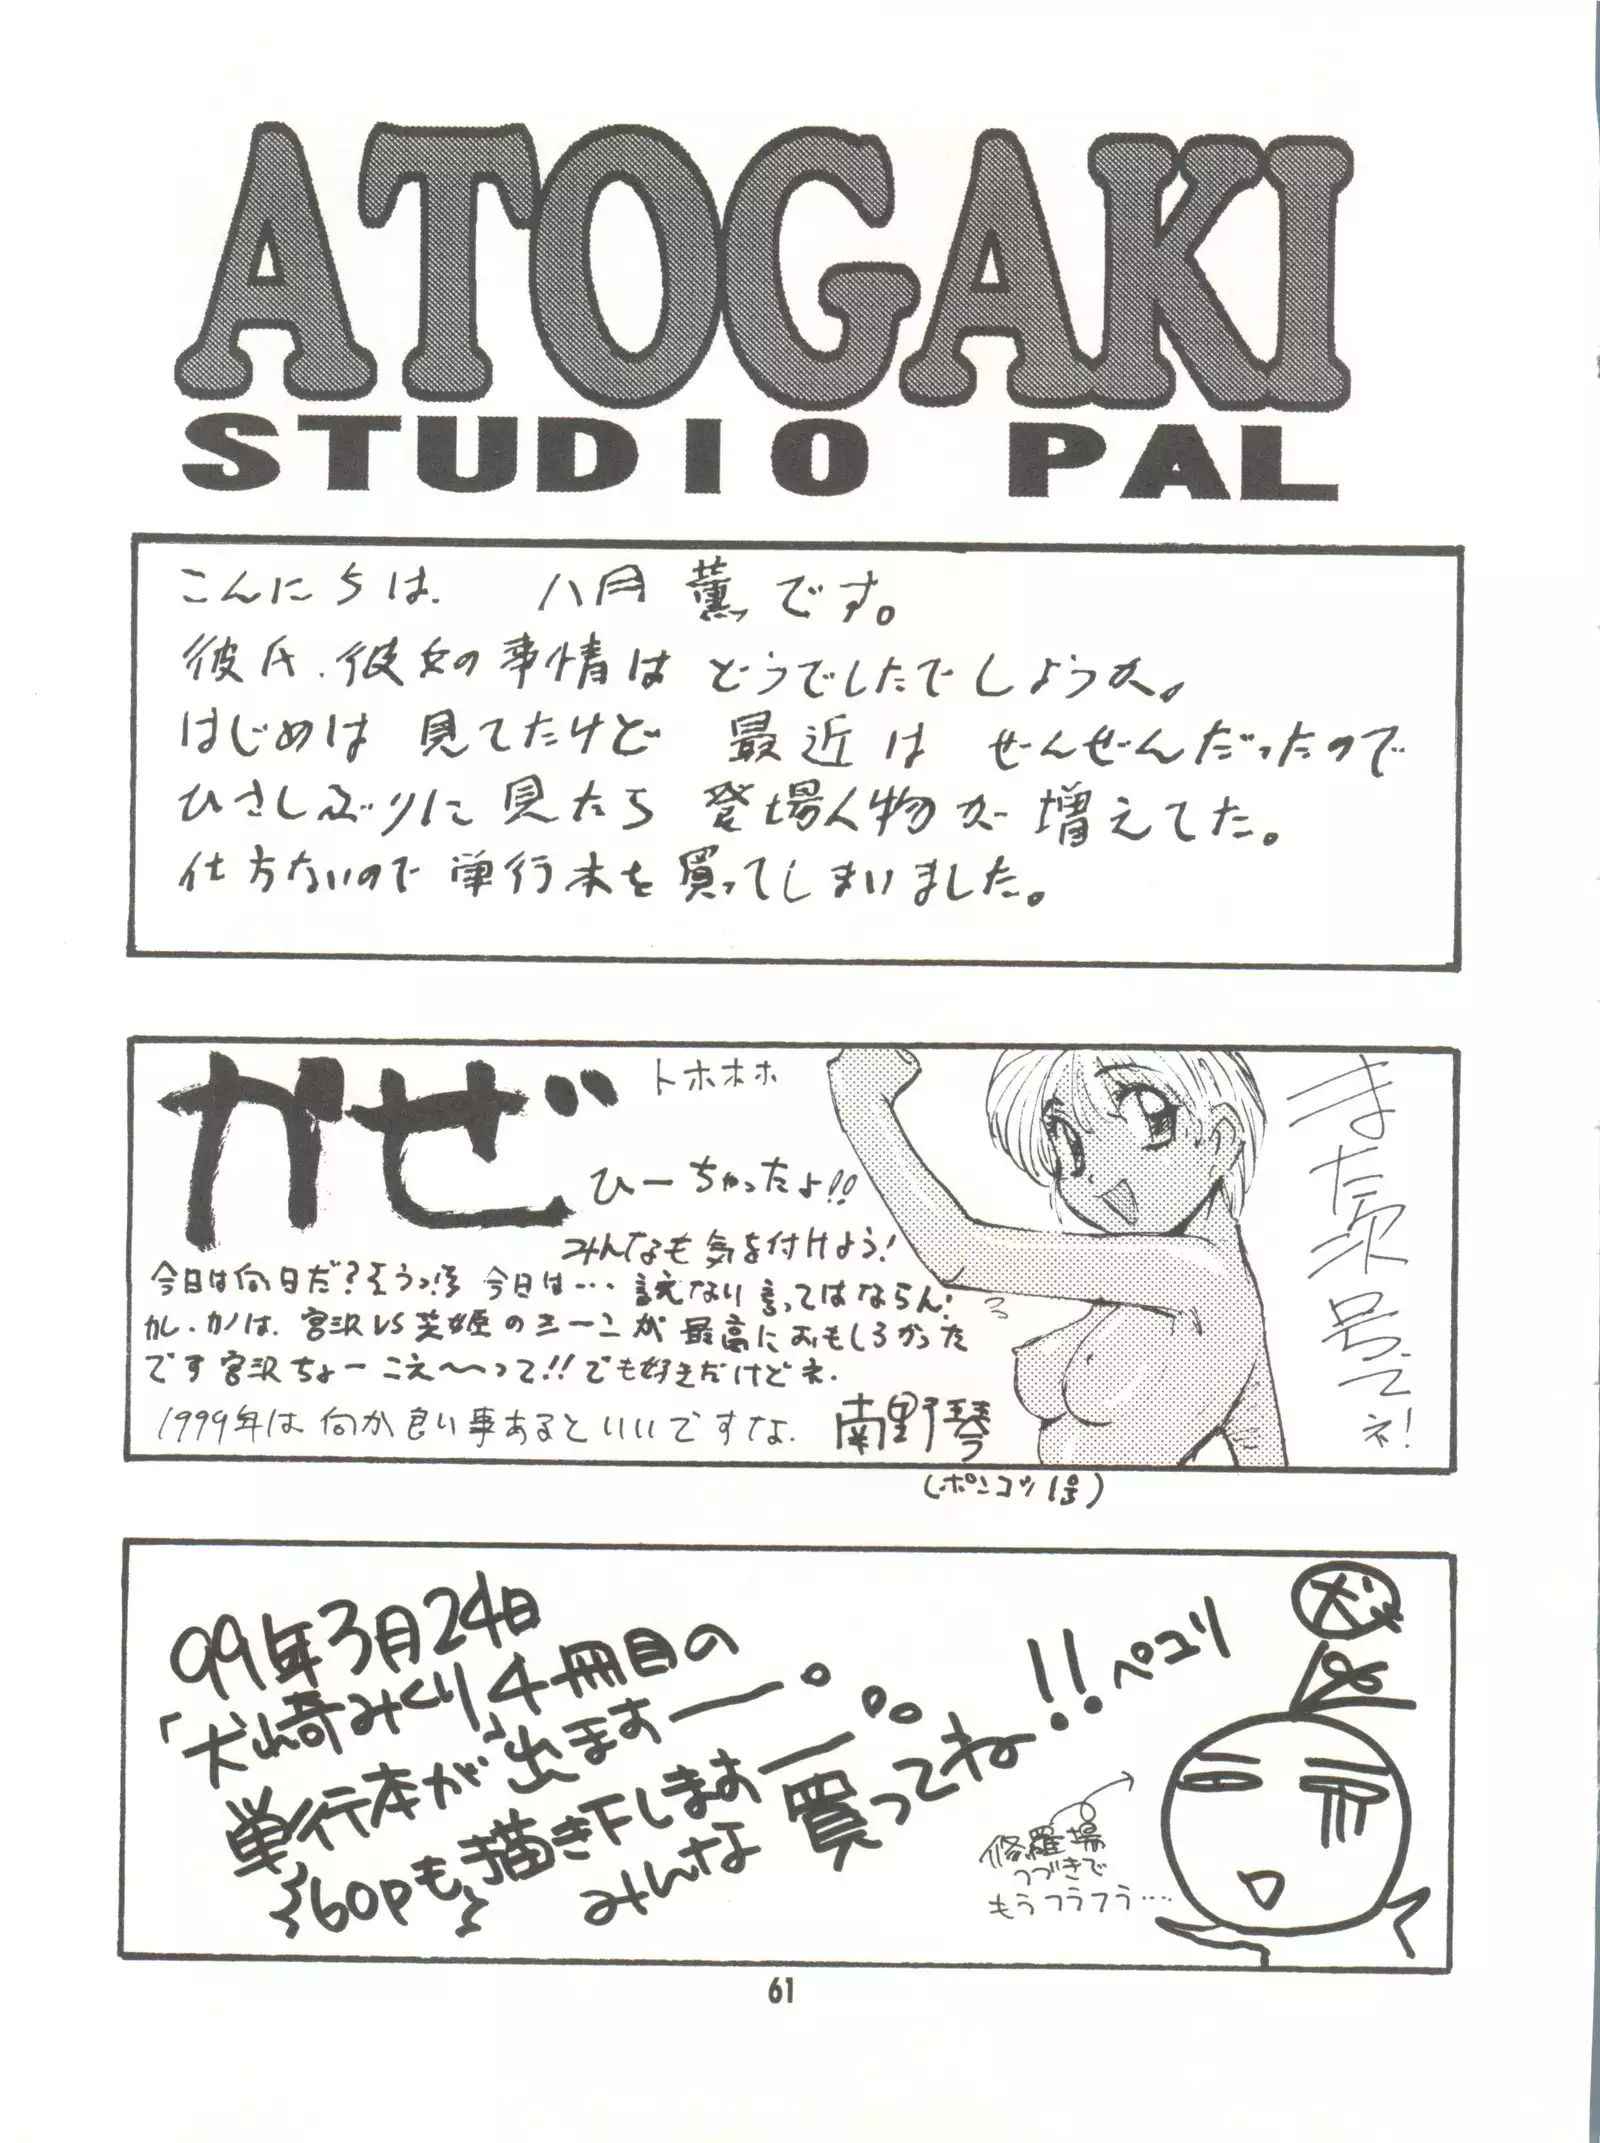 ATOGAKI
STUDIO PAL
こんにちは、 八月 薫です。
彼氏、彼女の事情は どうでしたでしょうか。
はじめは 見てたけど 最近は ぜーんぜんだったので
ひさしぶりに 見たら 登場人物が 増えてた。
仕方ないので 単行本を 買ってしまいました。
かぜ
トホホホ
ひーちゃったよ!!
みんなも 気を付けよう!
今日は何日だ?そうっ!! 今日は… 言えない 言ってはならん!
カレ.カノは、宮沢VS芝姫のシーンが 最高におもしろかった
です 宮沢ちょーこえ〜〜って!!でも好きだけどネ.
1999年は 何か良い事あるといいですな.
南野琴
(ポンコツ1号)
また次号でネ!
99年3月24日
「犬崎みくり」4冊目の
単行本が出ますー。
60pも描き下しますー。。
みんな 買ってね!! ペコリ
犬
修羅場
つづきで
もうフラフラ…
61